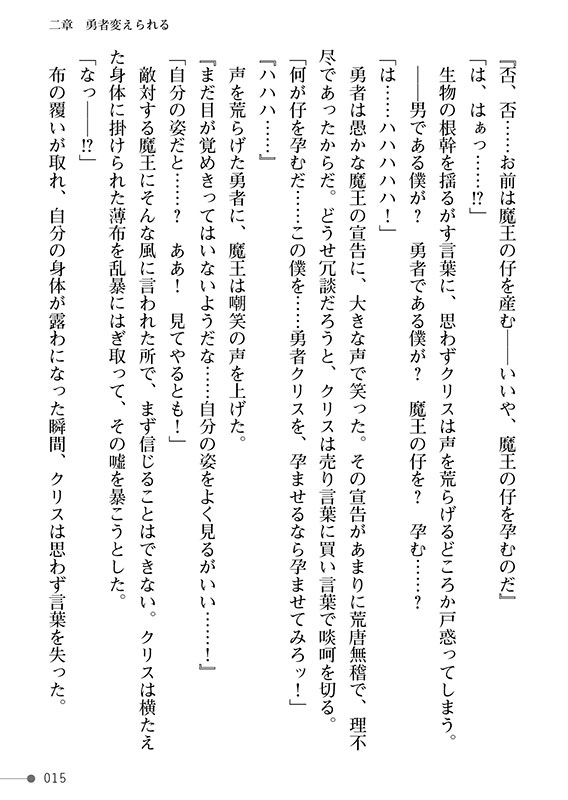 二章　勇者変えられる
『否、否……お前は魔王の仔を産む――いいや、魔王の仔を孕むのだ』
「は、はぁっ……⁉」
　生物の根幹を揺るがす言葉に、思わずクリスは声を荒らげるどころか戸惑ってしまう。
　――男である僕が？　勇者である僕が？　魔王の仔を？　孕む……？
「は……ハハハハハ！」
　勇者は愚かな魔王の宣告に、大きな声で笑った。その宣告があまりに荒唐無稽で、理不
尽であったからだ。どうせ冗談だろうと、クリスは売り言葉に買い言葉で啖呵を切る。
「何が仔を孕むだ……この僕を……勇者クリスを、孕ませるなら孕ませてみろッ！」
『ハハハ……』
　声を荒らげた勇者に、魔王は嘲笑の声を上げた。
『まだ目が覚めきってはいないようだな……自分の姿をよく見るがいい……！』
「自分の姿だと……？　ああ！　見てやるとも！」
　敵対する魔王にそんな風に言われた所で、まず信じることはできない。クリスは横たえ
た身体に掛けられた薄布を乱暴にはぎ取って、その嘘を暴こうとした。
「なっ――⁉」
　布の覆いが取れ、自分の身体が露わになった瞬間、クリスは思わず言葉を失った。
015